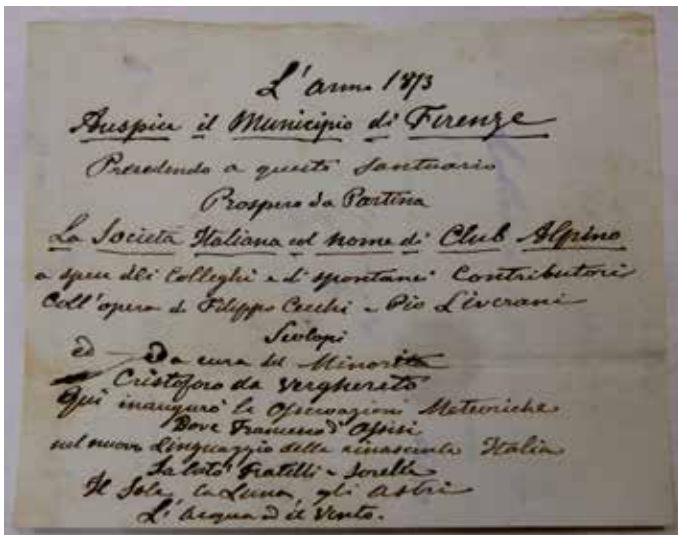 L'anno 1873
Auspice il Municipio di Firenze
Presedendo a questo Santuario
Prospero da Partina
La Società Italiana col nome di Club Alpino
a spese dei Colleghi e di spontanei Contributori
Coll'opera di Filippo Cecchi e Pio Liverani
Scolopi
ed a cura del Minorita
Cristoforo da Vergherito
Qui inaugurò le Osservazioni Meteoriche
Dove Francesco d'Assisi
nel nuovo linguaggio della rinascente Italia
Salutò Fratelli e Sorelle
Il Sole, la Luna, gli astri
L'Acqua ed il Vento.